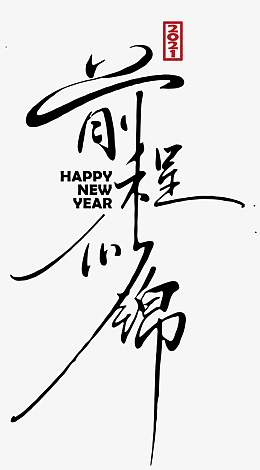 2021
前程似锦
HAPPY
NEW
YEAR